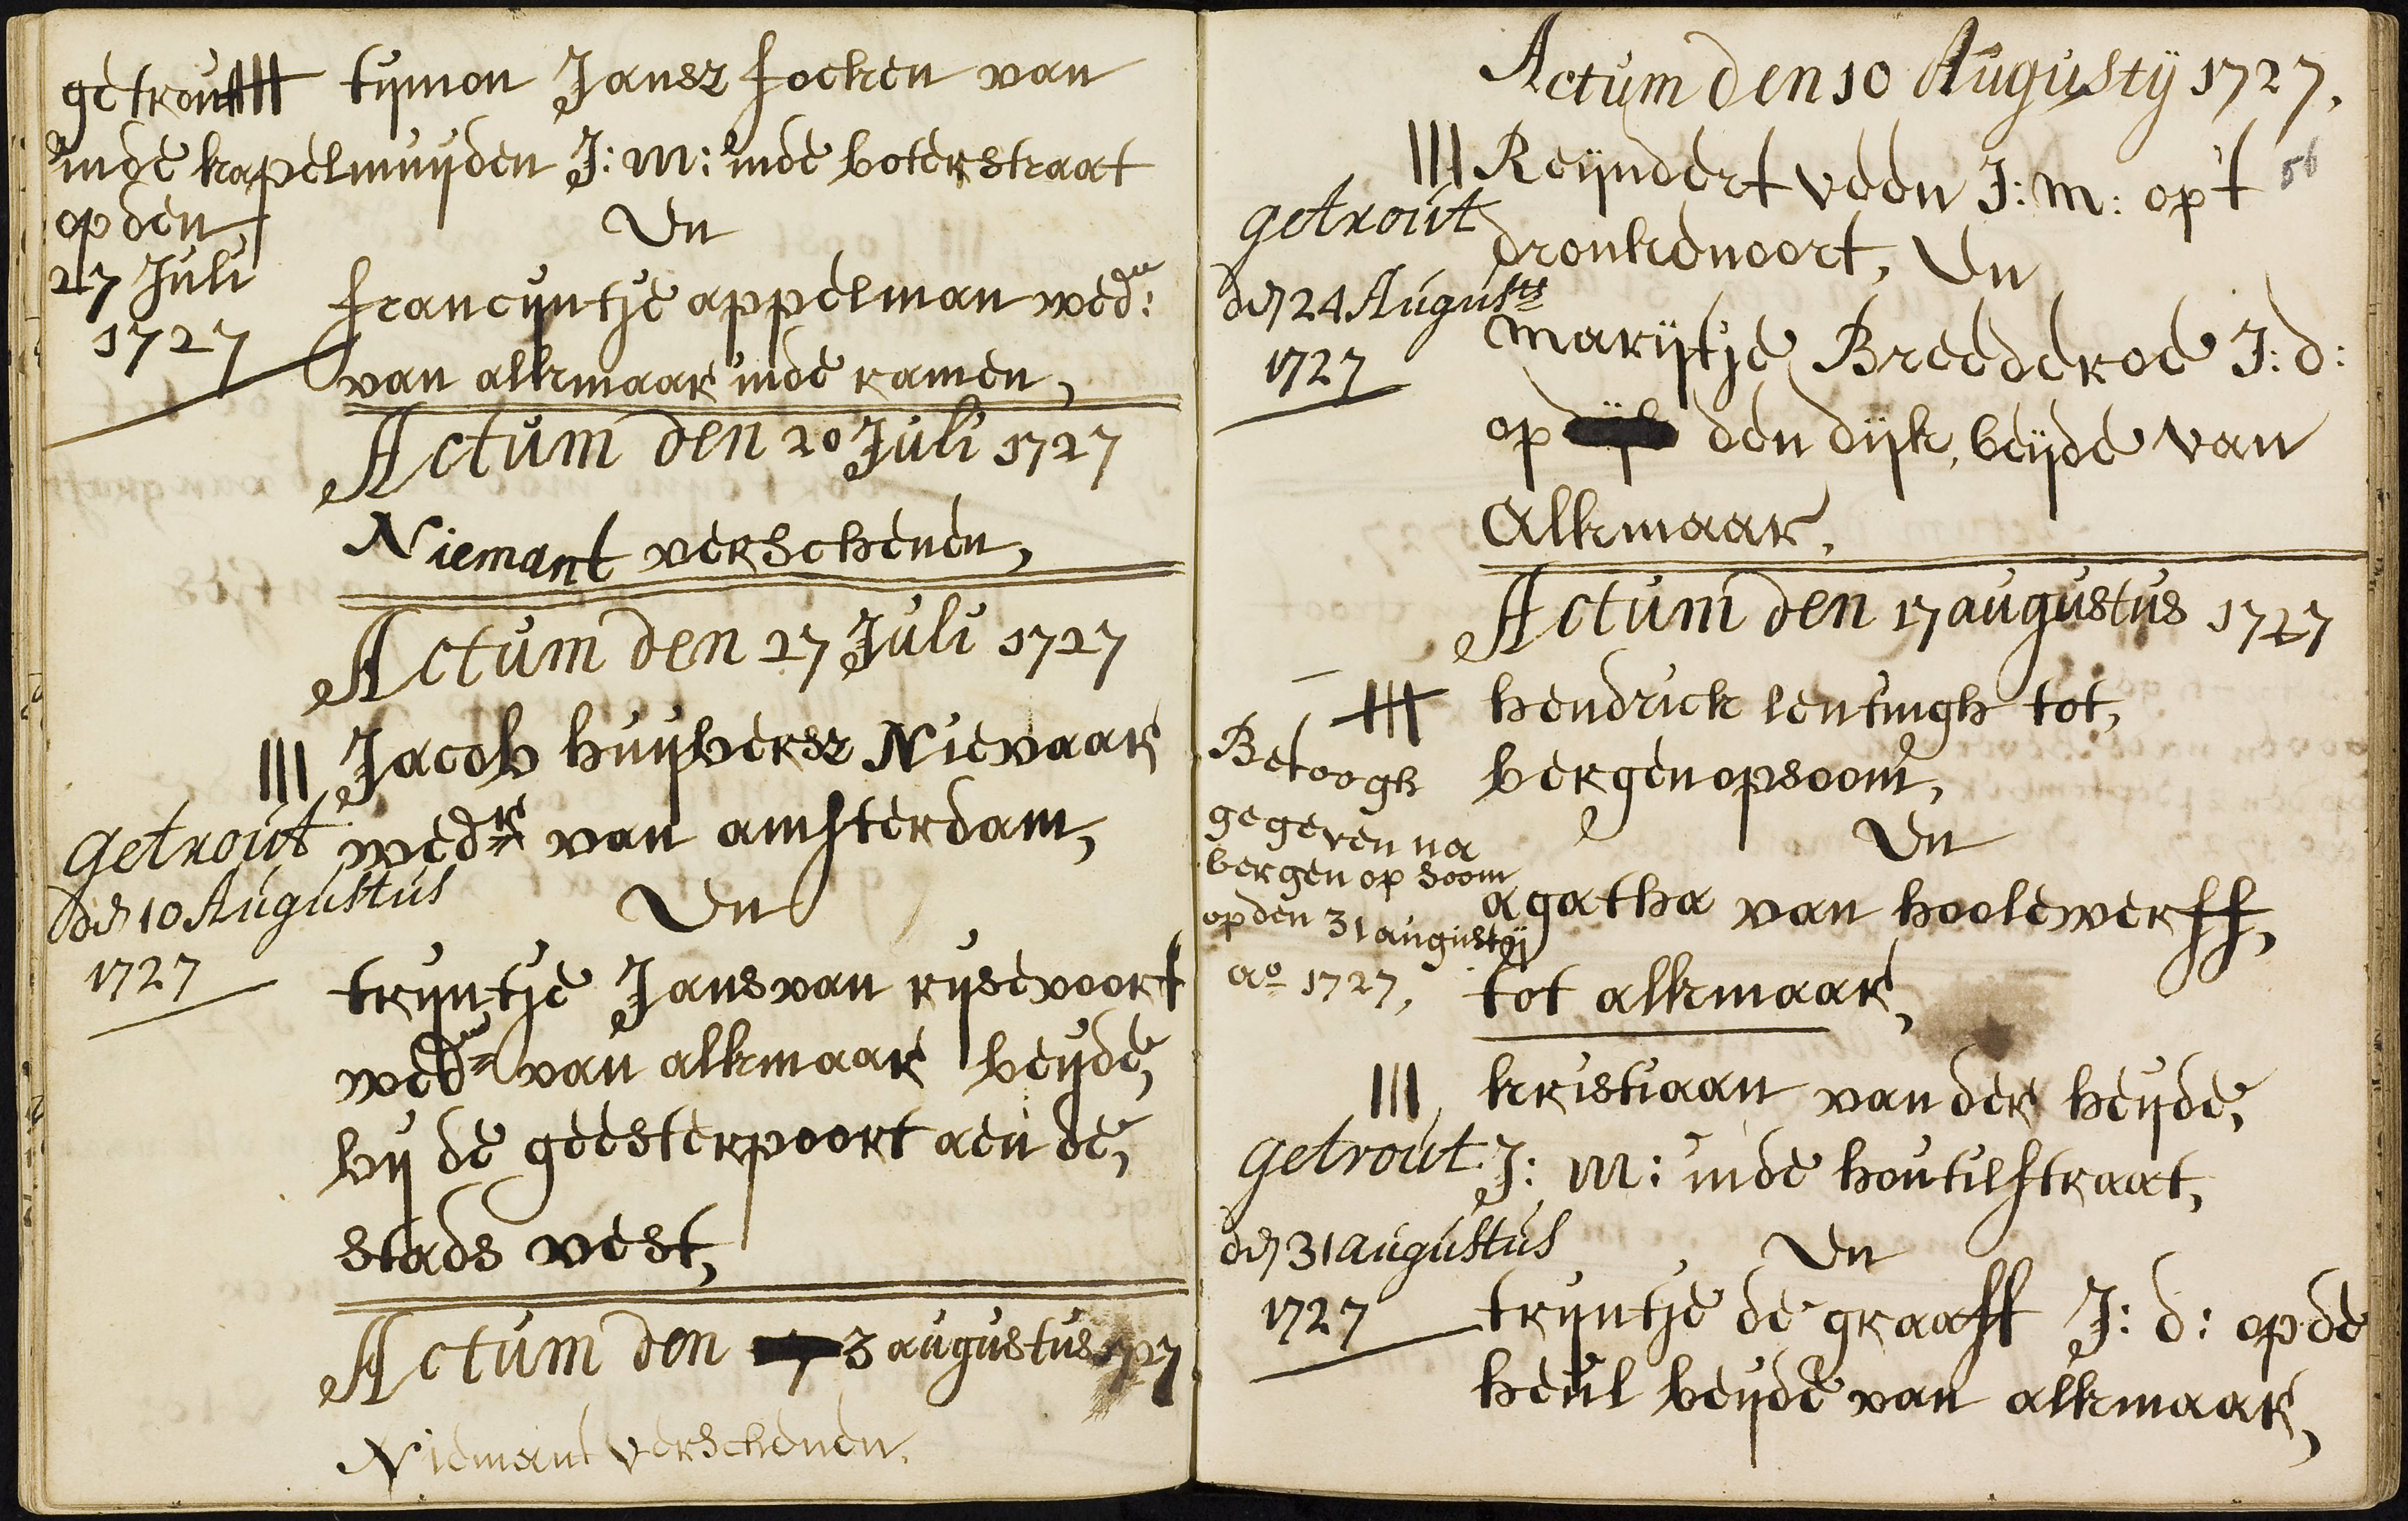 getrout III tijmon Jansz focken van
inde kapelmuijden J: M: inde boterstraat
op den
En
27 Juli
francijntje appelman wed:e
1727
van alkmaar inde ramen,
Actum den 20 Juli 1727
Niemant verschenen,
Actum den 27 Juli 1727
III Jacob huijbersz Nievaar
getrout wedr van amsterdam,
den 10 Augustus
En
1727
trijntje Jans van rijsevoort
wede van alkmaar beijde,
bij de geesterpoort aen de,
stads vest,
Actum den 3 augustus 1727
Niemant verschenen,
Actum den 10 Augustij 1727,
56
III Reijndert veen J: M: op't
getrout
dronkenoort, En
den 24 Augusts
1727
Marijtje Breederoe J: d:
op den dijk, beijde van
Alkmaar,
Actum den 17 augustus 1727
III hendrick lentingh tot,
Betoogh
bergen opsoom,
gegeven na
En
bergen op soom
op den 31 augustij
agatha van hoolewerff,
ao 1727,
tot alkmaar,
III kristiaan van der heijde,
getrout J: M: inde houtilstraat,
den 31 augustus
En
1727
trijntje de graaff J: d: op de
heul beijde van alkmaar,